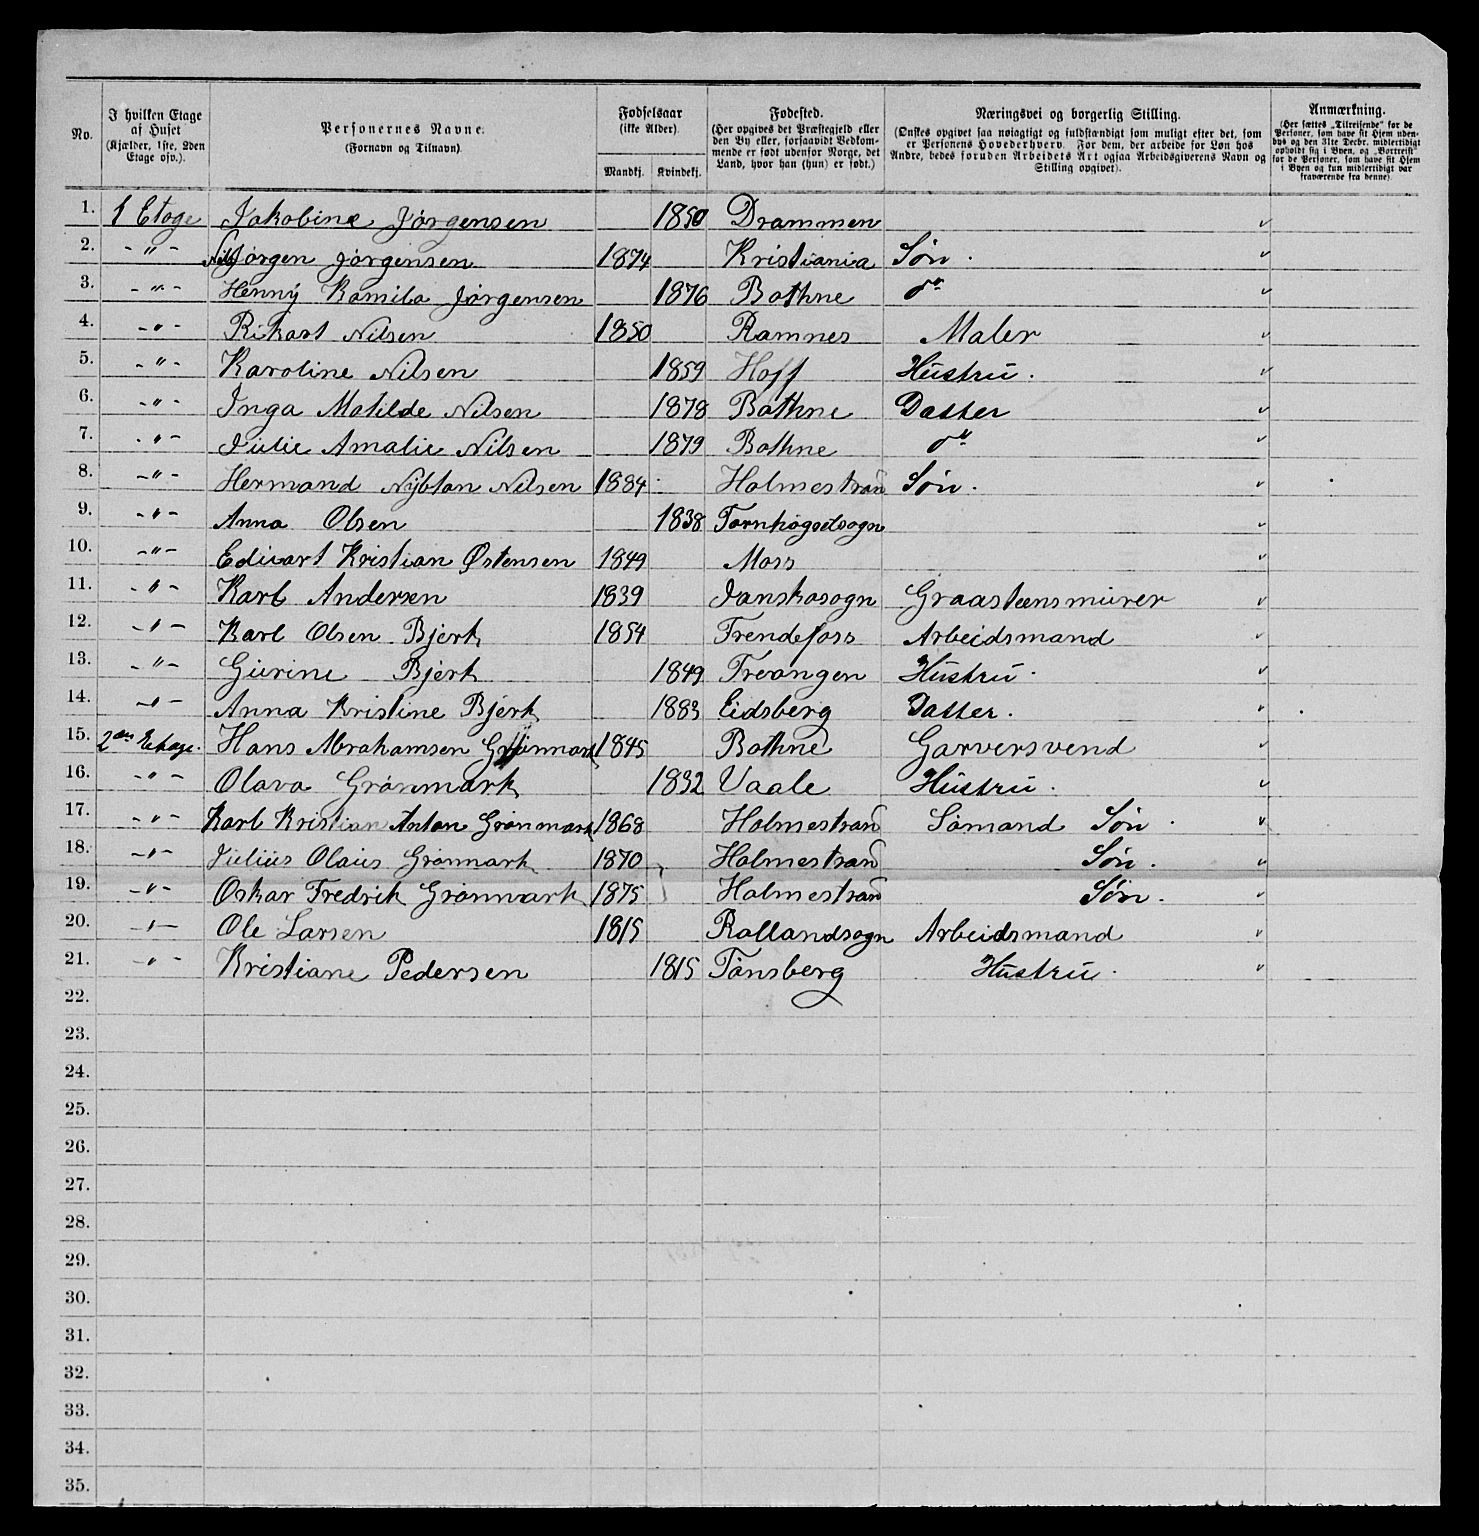 No. | I hvilken Etage af Huset (Kjælder, 1ste, 2den Etage osv.). | Personernes Navne. (Fornavn og Tilnavn). | Fødselsaar (ikke Alder). Mandkj. | Kvindekj. | Fødested. (Her opgives det Præstegjeld eller den By eller, forsaavidt Vedkommende er født udenfor Norge, det Land, hvor han (hun) er født.) | Næringsvei og borgerlig Stilling. (Ønskes opgivet saa nøiagtigt og fuldstændigt som muligt efter det, som er Personens Hovederhverv. For dem, der arbeide for Løn hos Andre, bedes foruden Arbeidets Art ogsaa Arbeidsgiverens Navn og Stilling opgivet). | Anmærkning. (Her sættes „Tilreisende“ for de Personer, som have sit Hjem udenbys og den 31te Decbr. midlertidigt opholdt sig i Byen, og „Bortreist“ for de Personer, som have sit Hjem i Byen og kun midlertidigt var fraværende fra denne).
1. 1 Etage Jakobine Jørgensen 1850 Drammen
2. - " - Nils Jørgen Jørgensen 1874 Kristiania Søn.
3. - " - Henny Kamila Jørgensen 1876 Bothne do
4. - " - Rikart Nilsen 1850 Ramnes Maler
5. - " - Karoline Nilsen 1859 Hoff Hustru.
6. - " - Inga Matilde Nilsen 1878 Bothne Datter
7. - " - Julie Amalie Nilsen 1879 Bothne do
8. - " - Hermand Nybton Nilsen 1884 Holmestran Søn.
9. - " - Anna Olsen 1838
10. - " - Edvart Kristian Østensen 1849 Moss
11. - " - Karl Andersen 1839 Janskosogn Graasteensmurer
12. - " - Karl Olsen Bjerk 1854 Trendefoss Arbeidsmand
13. - " - Gurine Bjerk 1849 Trevangen Hustru.
14. - " - Anna Kristine Bjerk 1883 Eidsberg Datter.
15. 2den Etage. Hans Abrahamsen Grønmark 1845 Bothne Garversvend
16. - " - Olava Grønmark 1832 Vaale Hustru.
17. - " - Karl Kristian Anton Grønmark 1868 Holmestran Sømand Søn.
18. - " - Julius Olaus Grønmark 1870 Holmestran Søn.
19. - " - Oskar Fredrik Grønmark 1875 Holmestran Søn.
20. - " - Ole Larsen 1815 Rollandsogn Arbeidsmand
21. - " - Kristiane Pedersen 1815 Tønsberg Hustru.
22.
23.
24.
25.
26.
27.
28.
29.
30.
31.
32.
33.
34.
35.